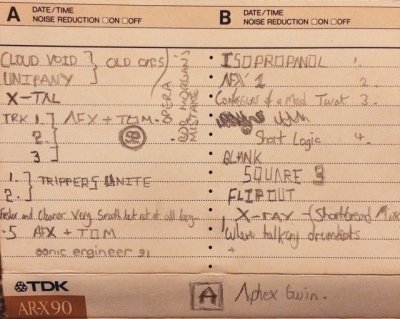 A DATE/TIME
NOISE REDUCTION □ ON □ OFF
CLOUD VOID } OLD ONES
UNIPANY
X-TAL
TRK 1. } AFX + TOM.
2.
3
1. } TRIPPERS UNITE
2.
and Cleaner Very Small but not at all
.5 AFX + TOM
sonic engineer 91
OPERA
MISTAKE
B DATE/TIME
NOISE REDUCTION □ ON □ OFF
ISOPROPANOL 1.
AFX 1 2.
Confessions of a Mad Twat 3.
Short Logic 4.
BLANK
SQUARE 3
FLIPOUT
X-RAY - (Shortbread Mix
Where talking drumbeats
+
TDK
AR-X 90
A Aphex twin.